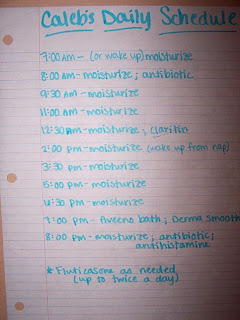 Caleb's Daily Schedule
7:00 AM - (or wake up) moisturize
8:00 AM - moisturize; antibiotic
9:30 AM - moisturize
11:00 AM - moisturize
12:30 PM - moisturize; Claritin
2:00 PM - moisturize (wake up from nap)
3:30 PM - moisturize
5:00 PM - moisturize
6:30 PM - moisturize
7:00 PM - Aveeno bath; Derma Smooth
8:00 PM - moisturize; antibiotic;
antihistamine
* Fluticasone as needed
(up to twice a day)